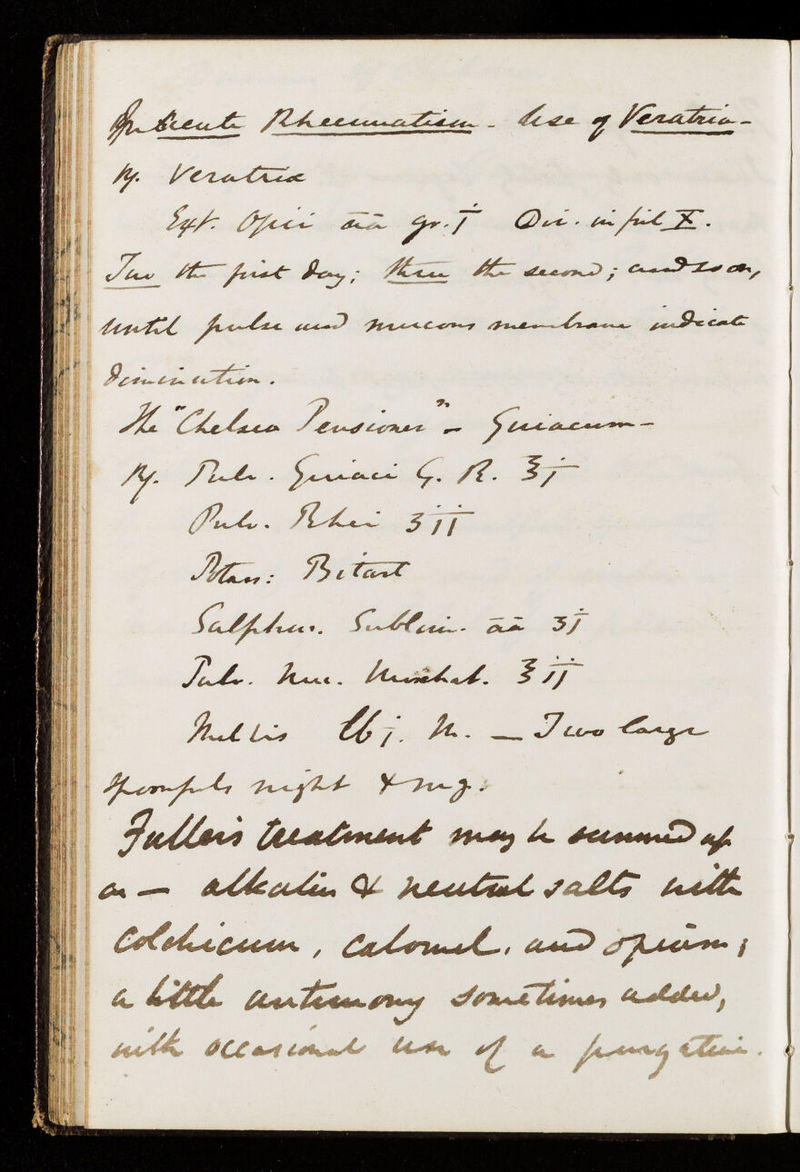 In Acute Rheumatism - Use of Veratria -
℞. Veratria
Ext. Opii āā gr. j Div. in pil X.
Two the first day; three the second; and so on,
until pulse and mucous membrane indicate
diminution.
The "Chelsea Pensioner" - Guiacum -
℞. Pulv. Guiaci G. R. ʒj
Pulv. Rhei ʒij
Potass: Bitart
Sulphur. Sublim. āā ℥j
Pulv. Nuc. Moschat. ʒij
Mellis ℔j. M. — Two large
spoonfuls night & mg.
Fuller's treatment may be summed up
as — alkalies & neutral salts with
colchicum, calomel, and opium;
a little antimony sometimes added,
with occasional use of a purgative.